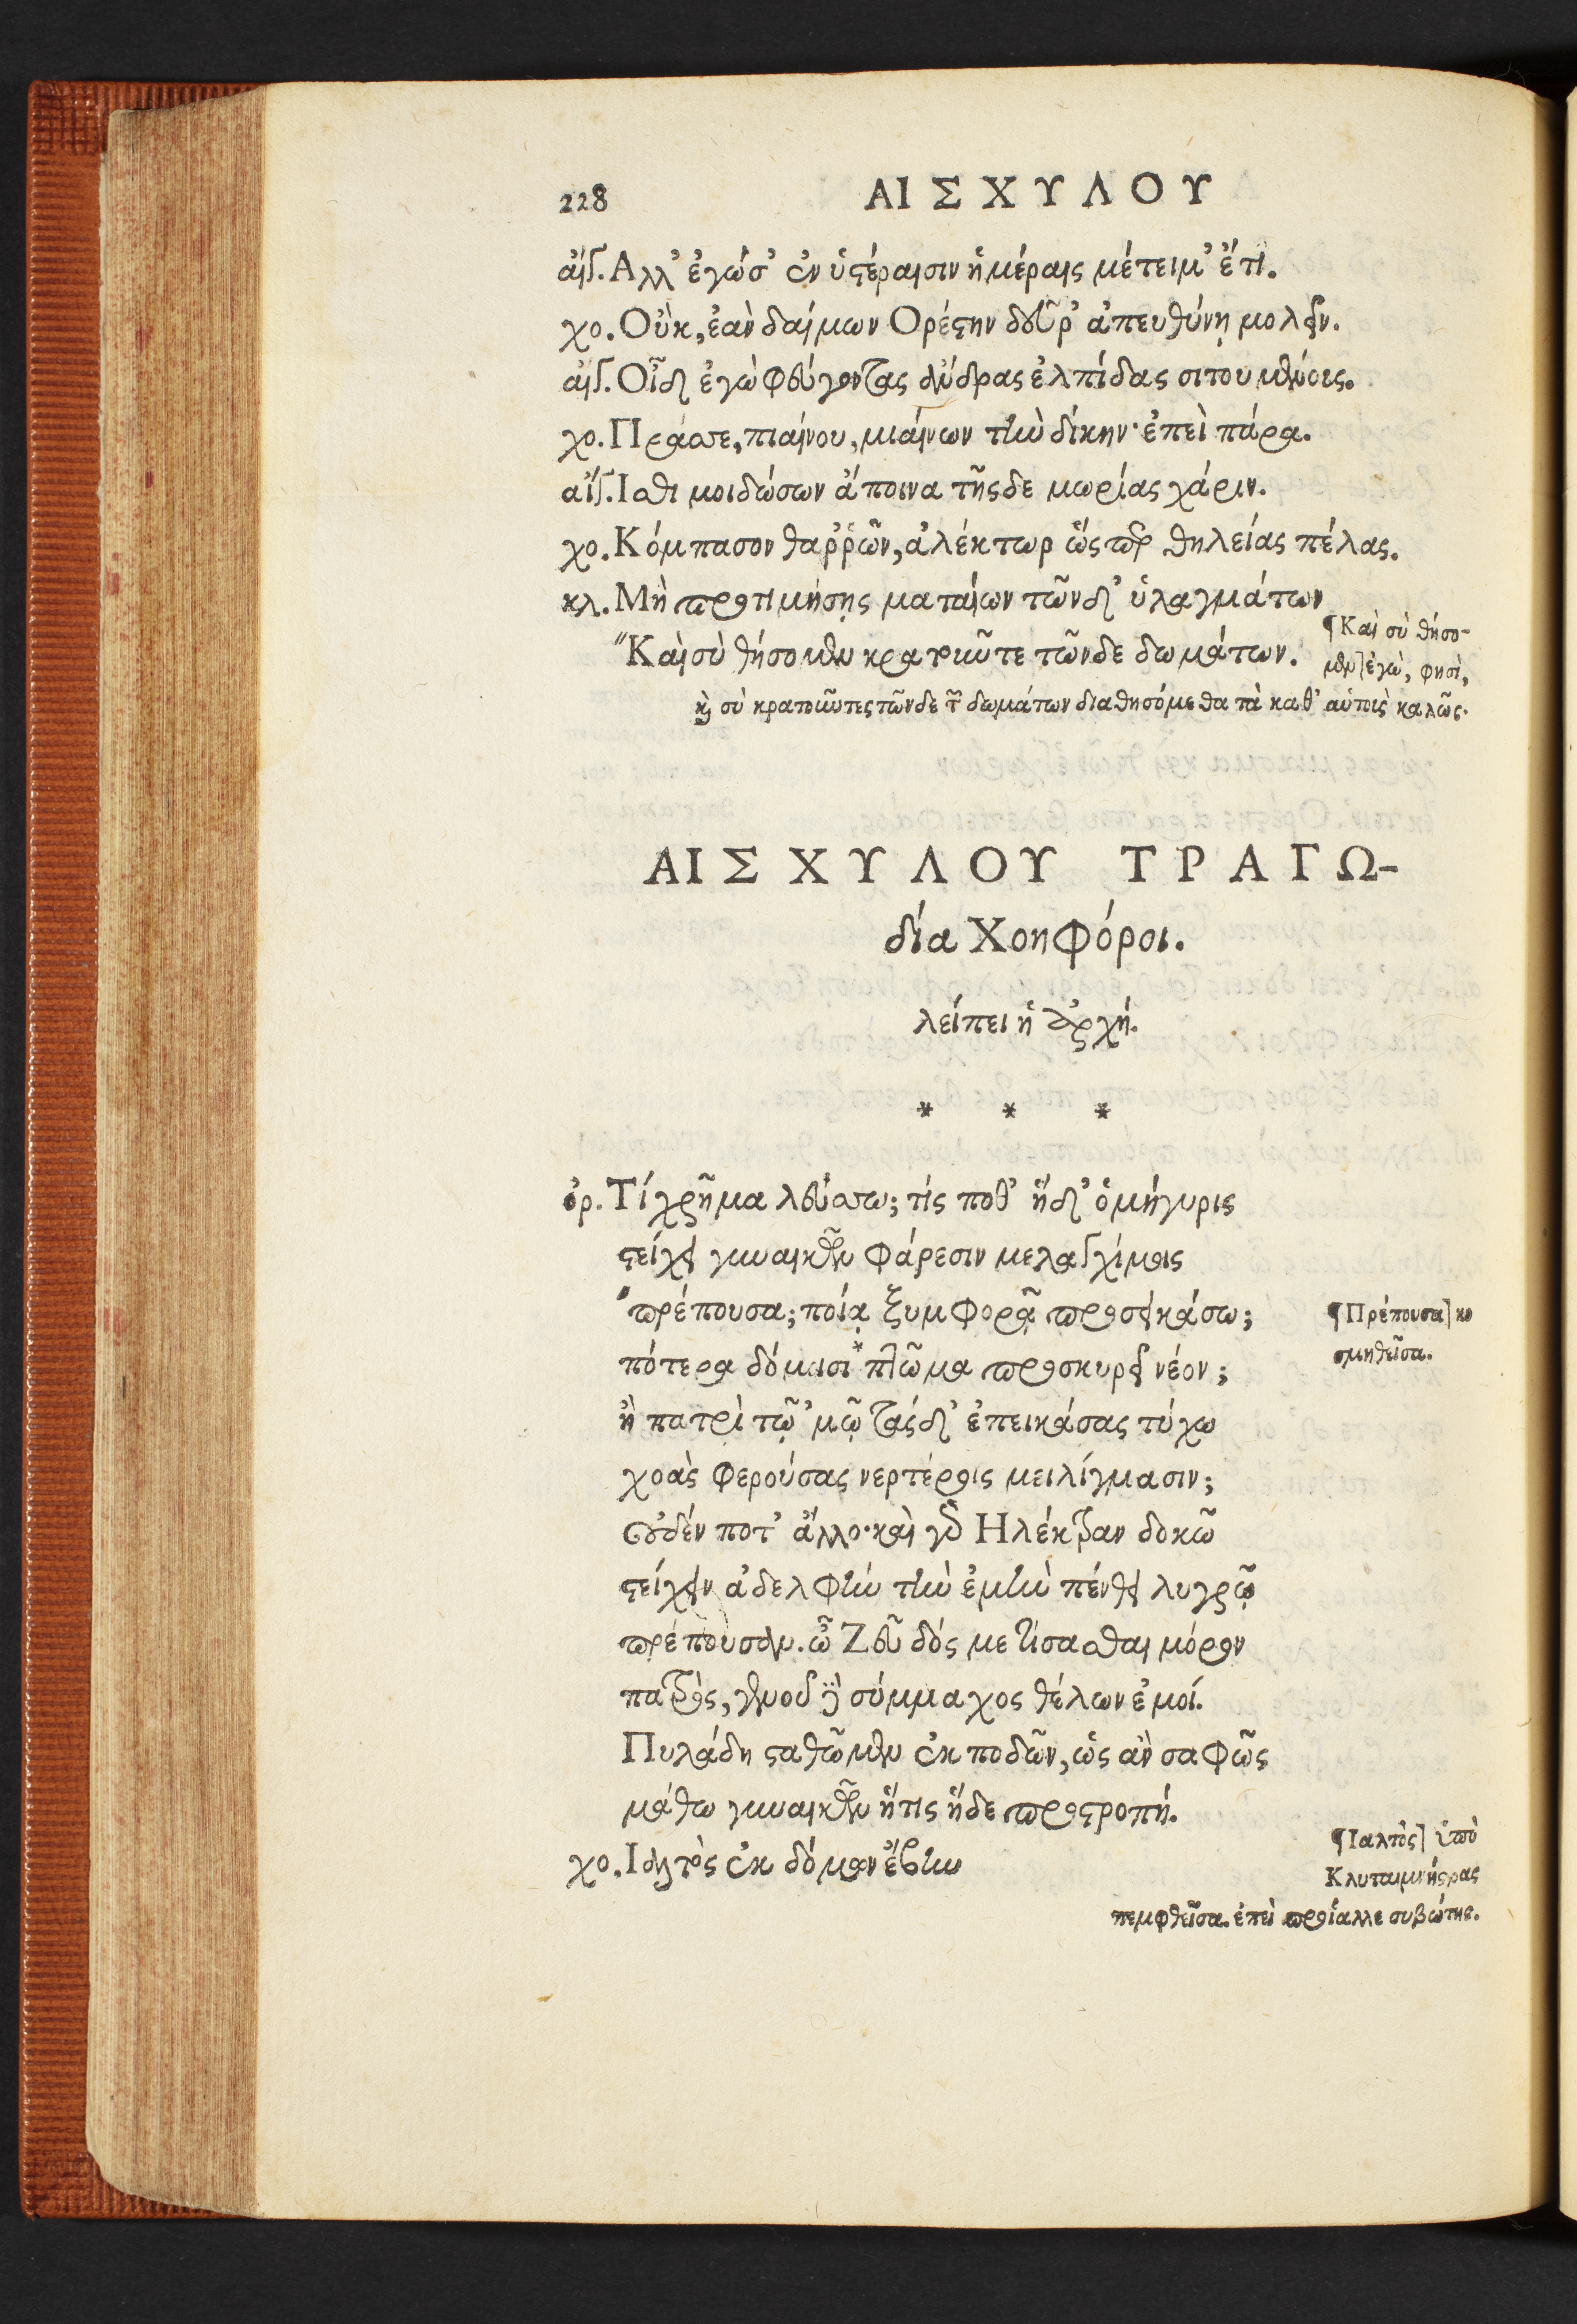 228 ΑΙΣΧΥΛΟΥ
αἰγ. Αλλ' ἐγώ σ' ἐν ὑστέραισιν ἡμέραις μέτειμ' ἔτι.
χο. Οὐκ, ἐὰν δαίμων Ορέστην δεῦρ' ἀπευθύνῃ μολεῖν.
αἰγ. Οἶδ' ἐγὼ φεύγοντας ἄνδρας ἐλπίδας σιτουμένους.
χο. Πράσσε, πιαίνου, μιαίνων τὴν δίκην· ἐπεὶ πάρα.
αἴγ. Ισθι μοι δώσων ἄποινα τῆςδε μωρίας χάριν.
χο. Κόμπασον θαῤῥῶν, ἀλέκτωρ ὥς περ θηλείας πέλας.
κλ. Μὴ προτιμήσῃς ματαίων τῶνδ' ὑλαγμάτων
¶Καὶ σὺ θήσο-
"Καὶ σὺ θήσομεν κρατοῦντε τῶνδε δωμάτων.
μεν] ἐγὼ, φησὶ,
καὶ σὺ κρατοῦντες τῶνδε τῶν δωμάτων διαθησόμεθα τὰ καθ' αὑτοὺς καλῶς.
ΑΙΣΧΥΛΟΥ ΤΡΑΓΩ-
δία Χοηφόροι.
λείπει ἡ ἀρχή.
* * *
ὀρ. Τί χρῆμα λεύσσω; τίς ποθ' ἥδ' ὁμήγυρις
στείχει γυναικῶν φάρεσιν μελαγχίμοις
"πρέπουσα; ποίᾳ ξυμφορᾷ προσεικάσω;
¶Πρέπουσα] κο
πότερα δόμοισι *πτῶμα προσκυρεῖ νέον;
σμηθεῖσα.
ἢ πατρὶ τῷ 'μῷ τάςδ' ἐπεικάσας τύχω
χοὰς φερούσας νερτέροις μειλίγμασιν;
οὐδέν ποτ' ἄλλο· καὶ γὰρ Ηλέκτραν δοκῶ
στείχειν ἀδελφὴν τὴν ἐμὴν πένθει λυγρῷ
πρέπουσαν. ὦ Ζεῦ δός με τίσασθαι μόρον
πατρὸς, γενοῦ δὲ σύμμαχος θέλων ἐμοί.
Πυλάδη σταθῶμεν ἐκποδῶν, ὡς ἂν σαφῶς
μάθω γυναικῶν ἥτις ἥδε προστροπή.
¶Ιαλτὸς] ὑπὸ
χο. Ιαλτὸς ἐκ δόμων ἔβην
Κλυταιμνήστρας
πεμφθεῖσα. ἐπεὶ προΐαλλε συβώτης.